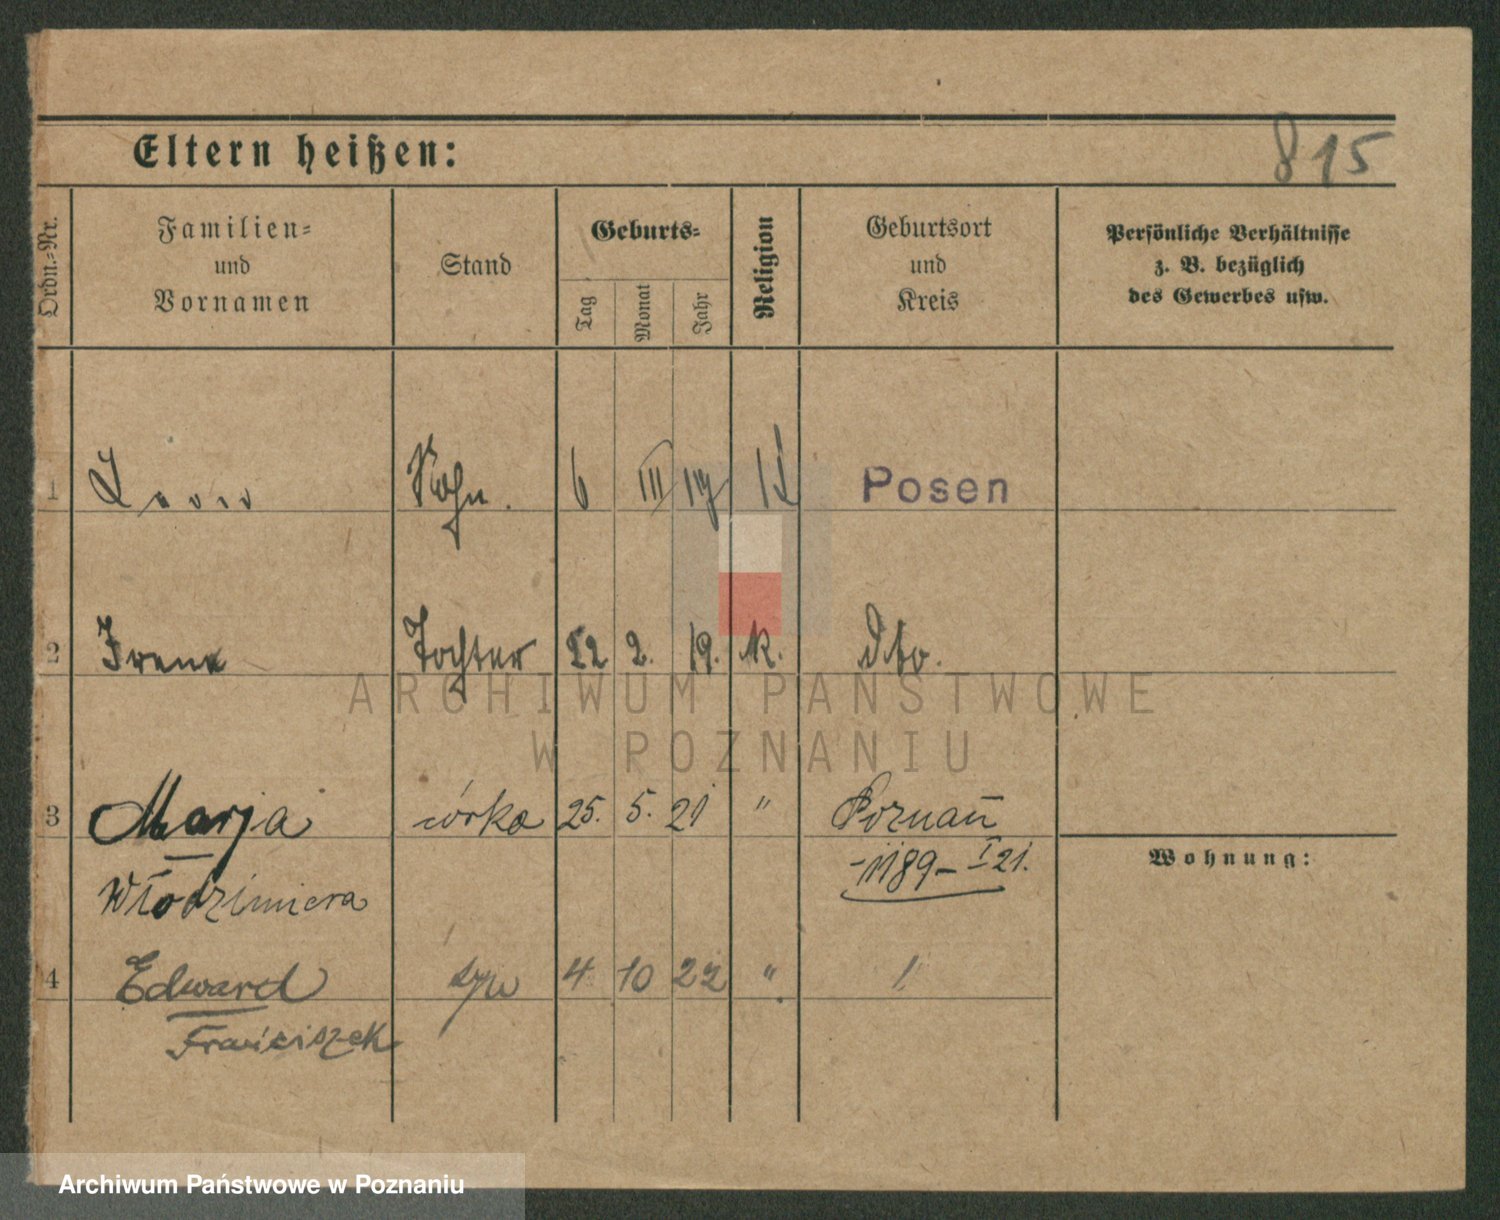 815
Eltern heißen:
Ordn.-Nr.
Familien-
und
Vornamen
Stand
Geburts-
Tag
Monat
Jahr
Religion
Geburtsort
und
Kreis
Persönliche Verhältnisse
z. B. bezüglich
des Gewerbes usw.
1 Leon Sohn. 6 III Posen
2 Irene Tochter 22 2. 19. k. dto.
ARCHIWUM PAŃSTWOWE
W POZNANIU
3 Marja córka 25. 5. 21 " Poznań
Włodzimiera -1189- I 21.
Wohnung:
4 Edward syn 4 10 22 "
Franciszek
Archiwum Państwowe w Poznaniu